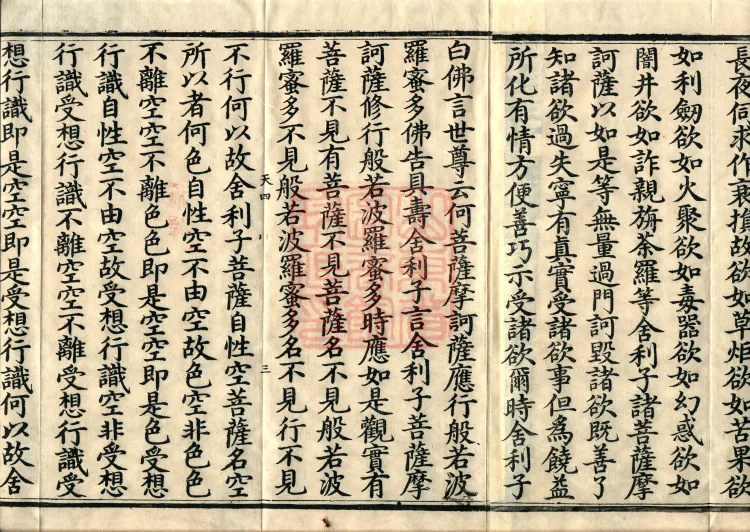 長夜伺求作衰損故欲如草炬欲如苦果欲
如利劒欲如火聚欲如毒器欲如幻惑欲如
闇井欲如詐親旃荼羅等舍利子諸菩薩摩
訶薩以如是等無量過門訶毀諸欲既善了
知諸欲過失寧有真實受諸欲事但為饒益
所化有情方便善巧示受諸欲爾時舍利子
白佛言世尊云何菩薩摩訶薩應行般若波
羅蜜多佛告具壽舍利子言舍利子菩薩摩
訶薩修行般若波羅蜜多時應如是觀實有
菩薩不見有菩薩不見菩薩名不見般若波
羅蜜多不見般若波羅蜜多名不見行不見
天四
三
不行何以故舍利子菩薩自性空菩薩名空
所以者何色自性空不由空故色空非色色
不離空空不離色色即是空空即是色受想
行識自性空不由空故受想行識空非受想
行識受想行識不離空空不離受想行識受
想行識即是空空即是受想行識何以故舍